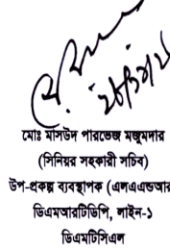 মোঃ মাসউদ পারভেজ মজুমদার
(সিনিয়র সহকারী সচিব)
উপ-প্রকল্প ব্যবস্থাপক (এলএএন্ডআর
ডিএমআরটিডিপি, লাইন-১
ডিএমটিসিএল